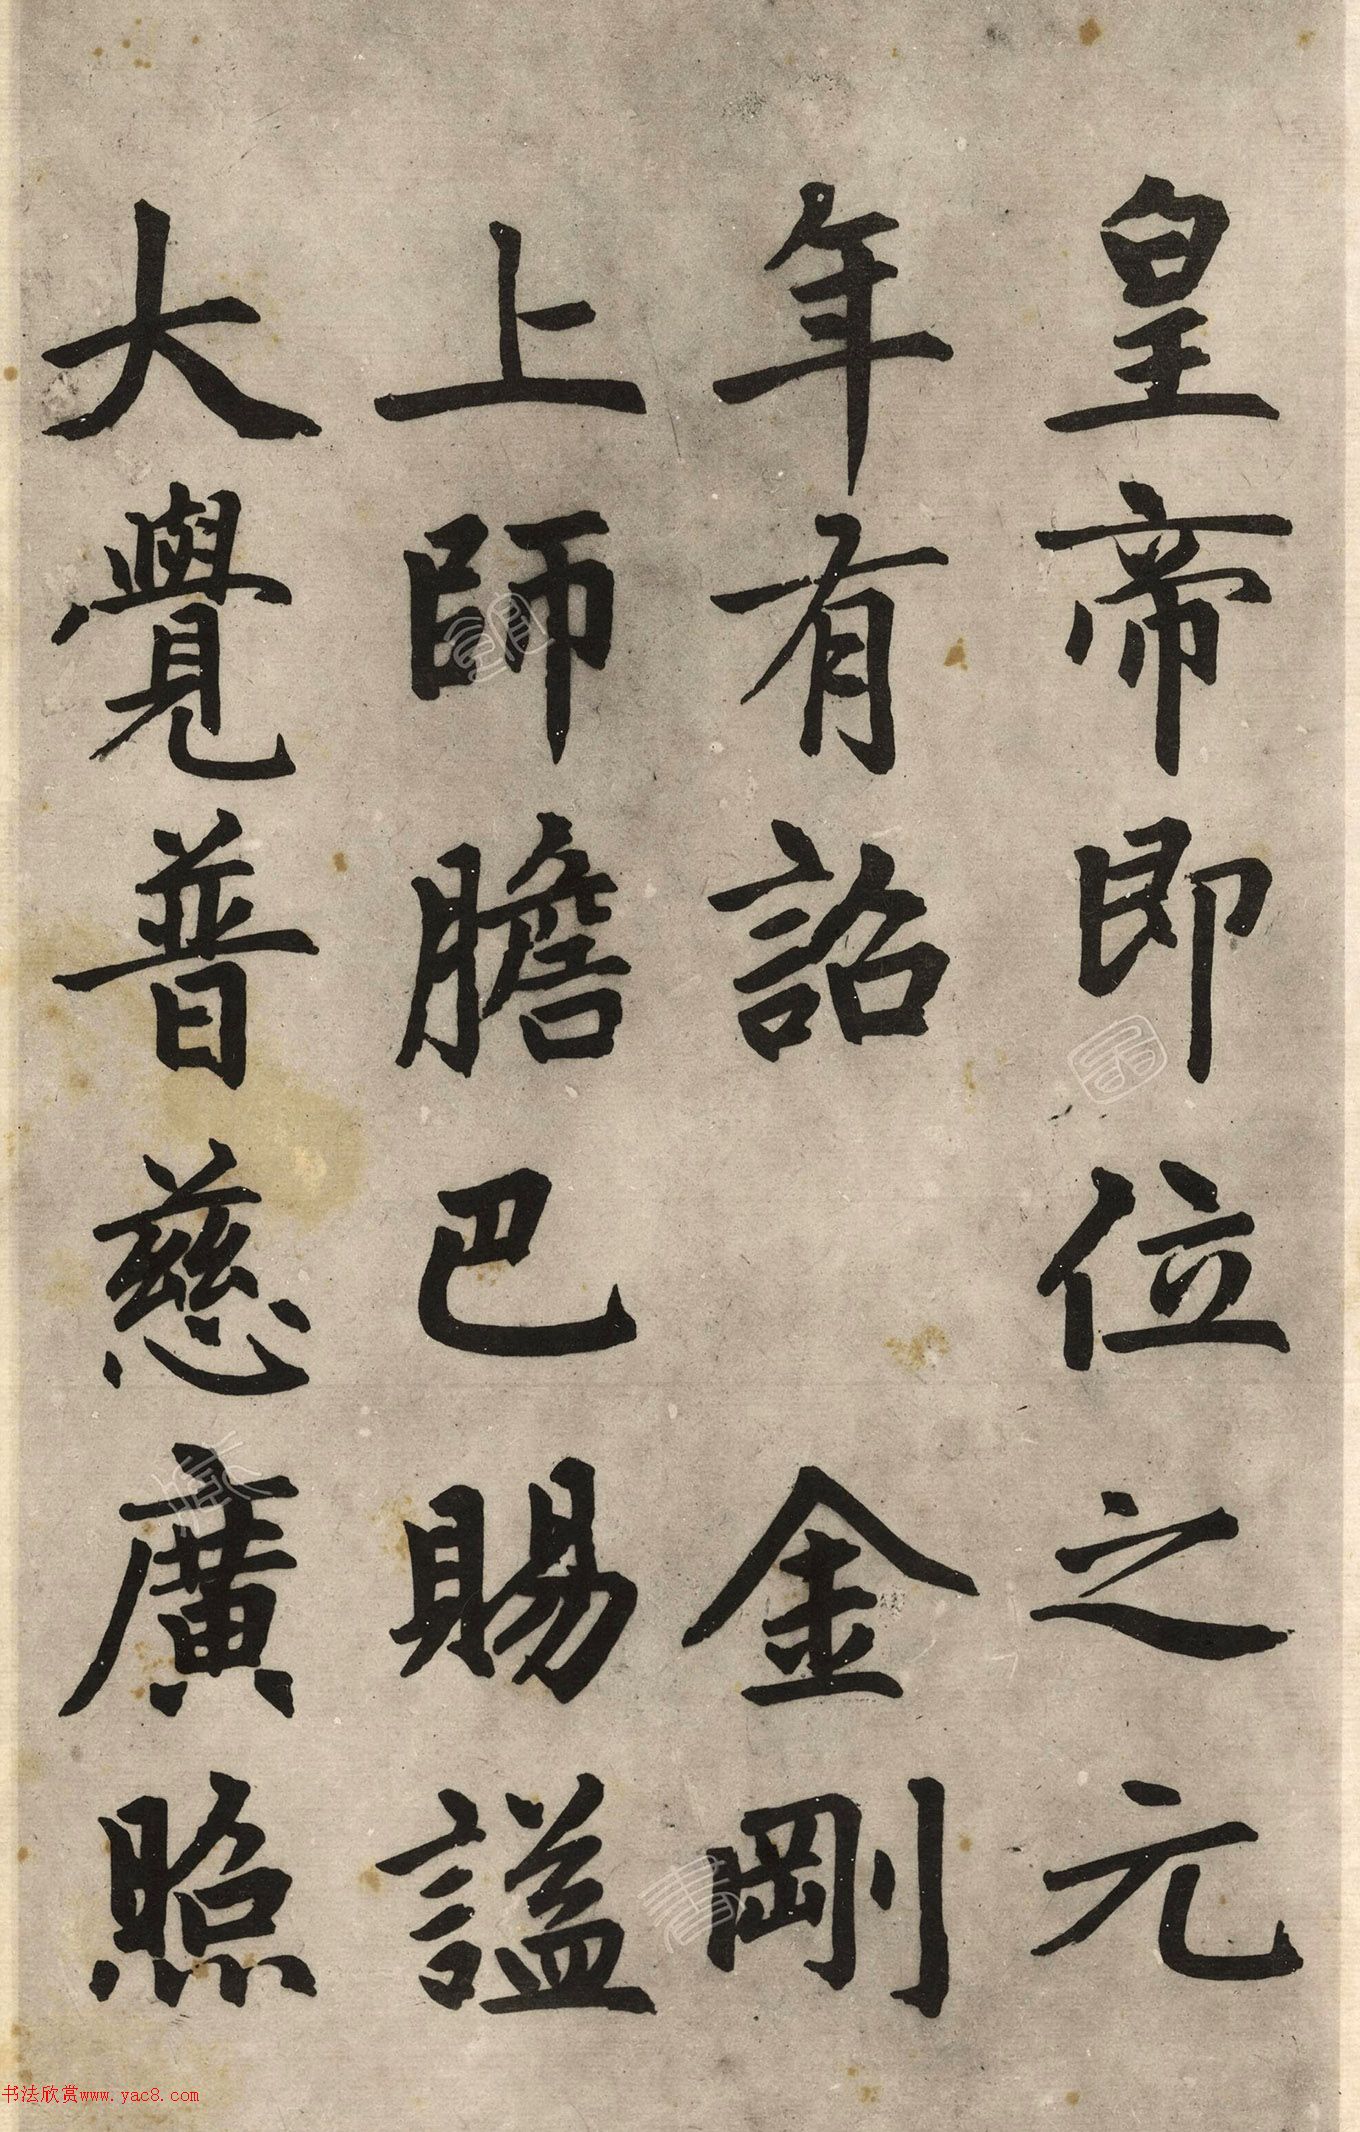 皇帝即位之元
年有詔 金剛
上師膽巴賜謚
大覺普慈廣照
书法欣赏www.yac8.com